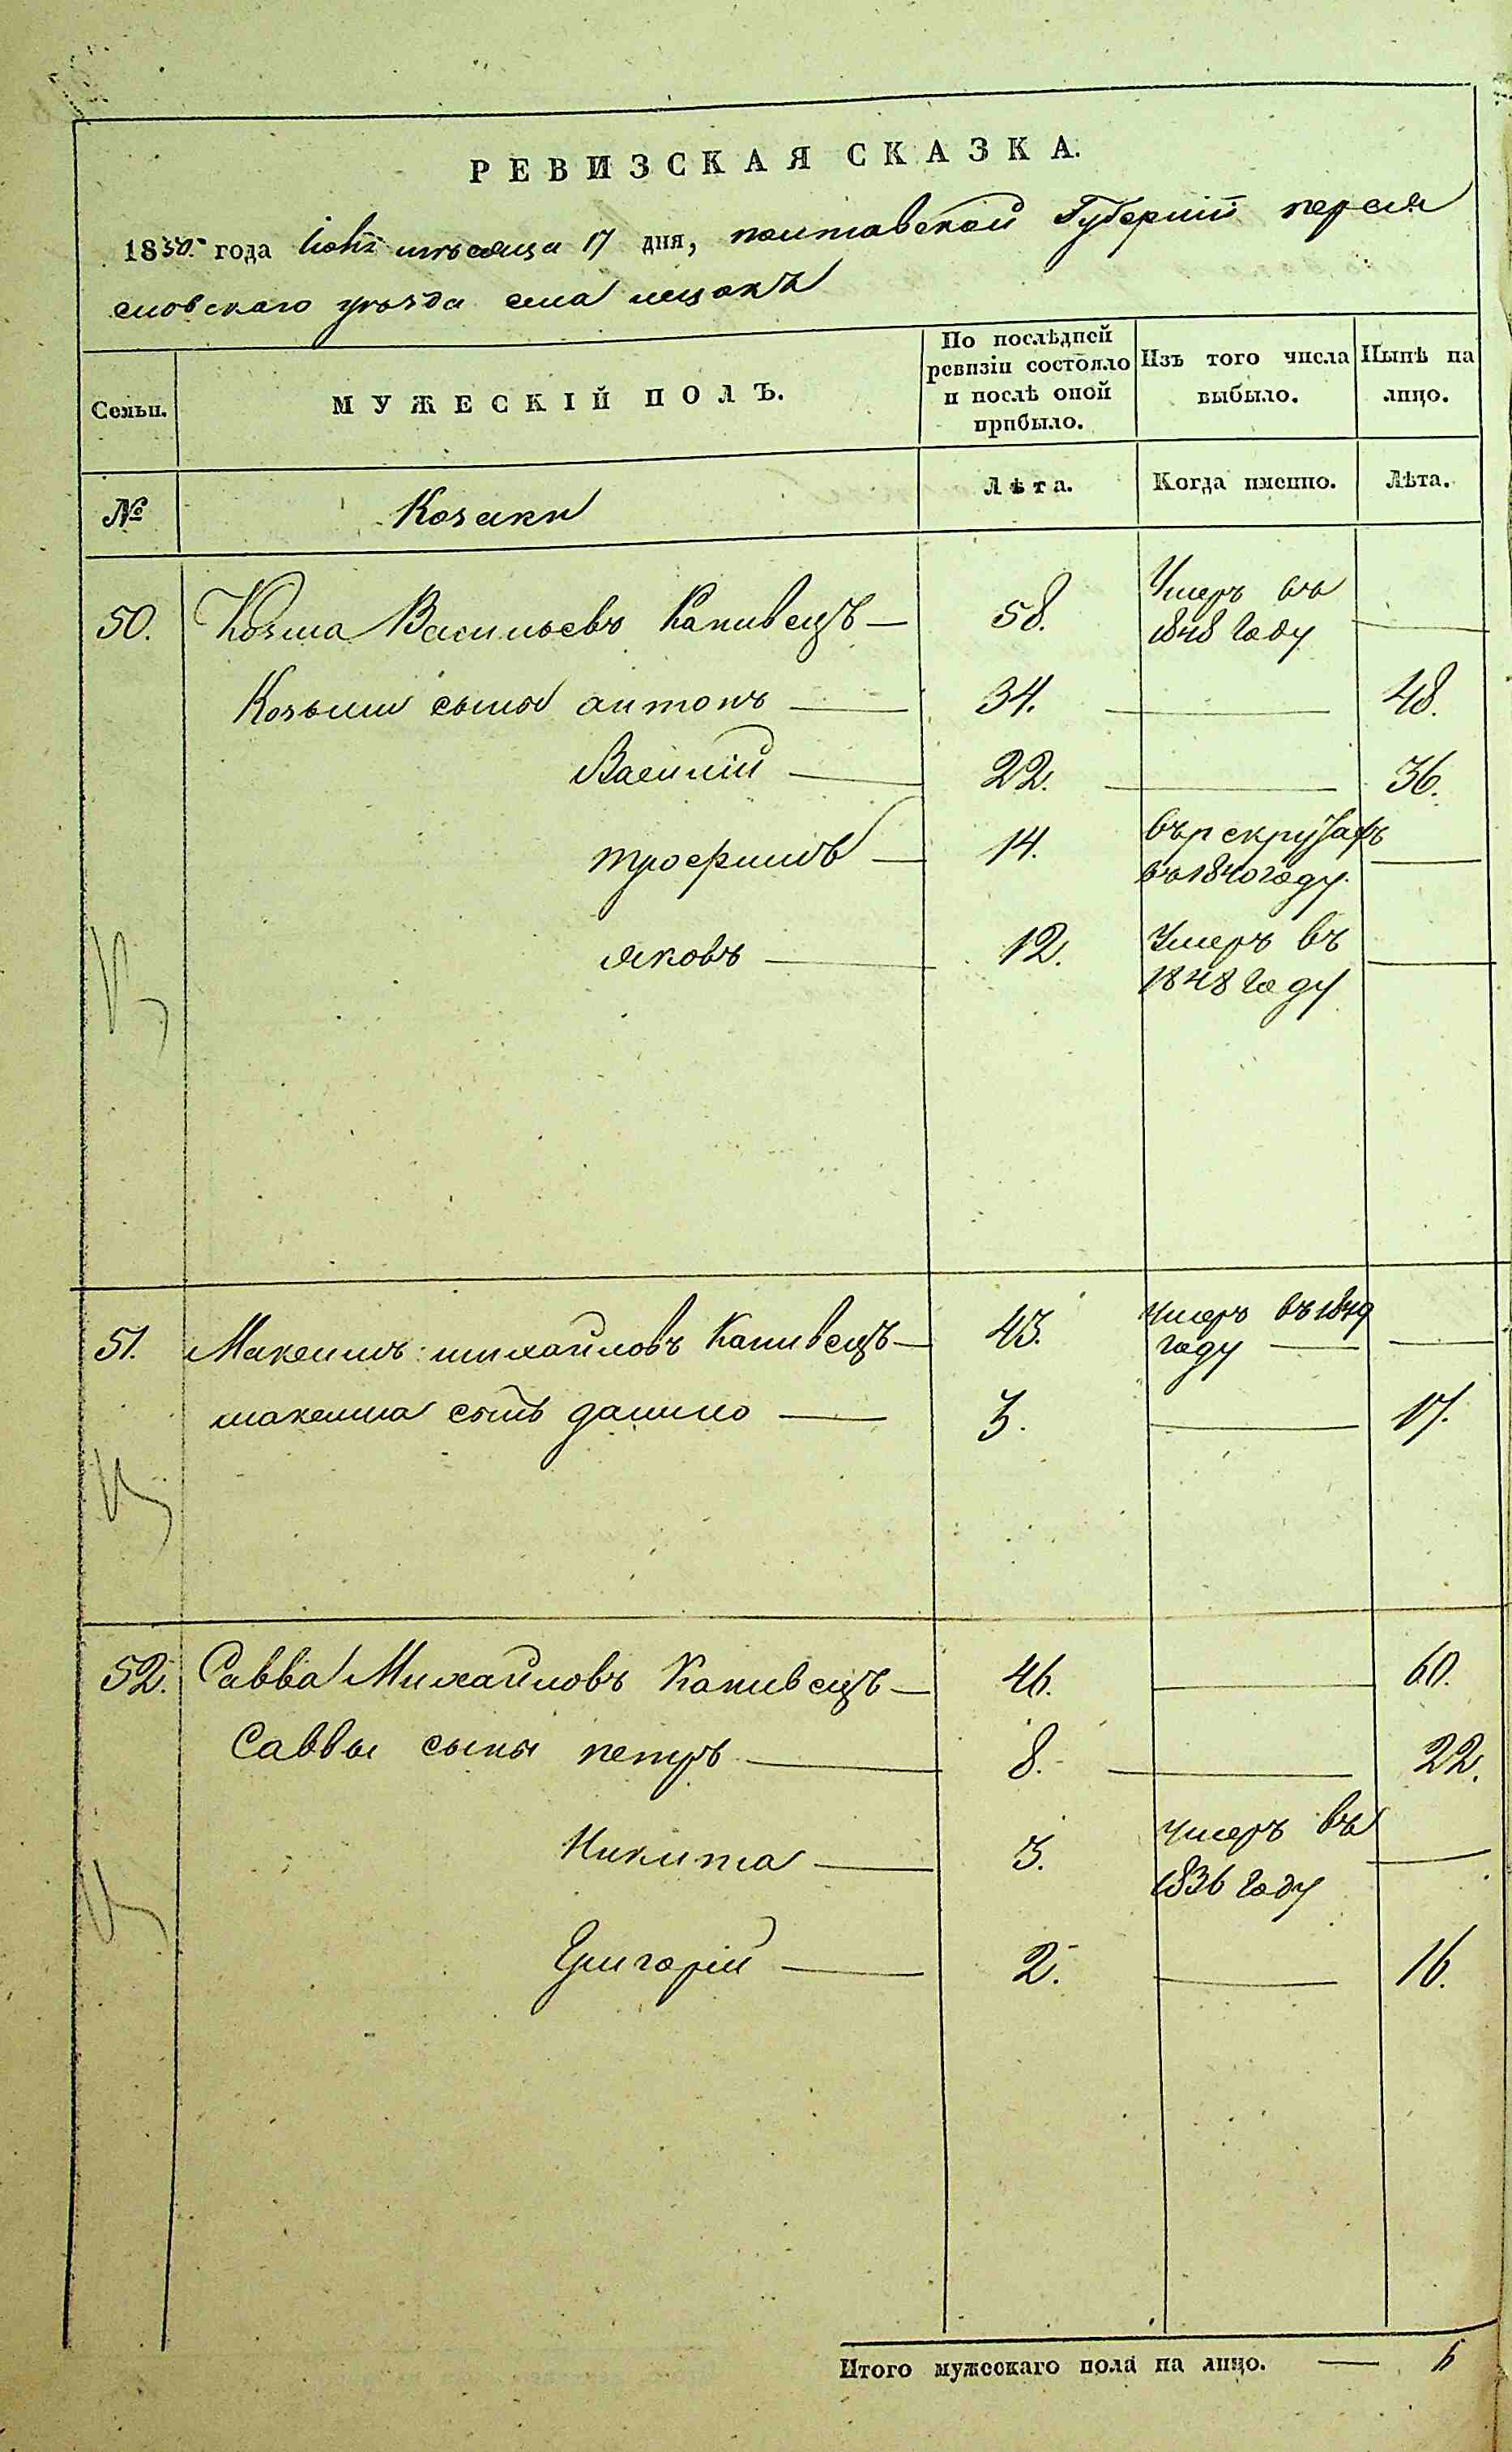 РЕВИЗСКАЯ СКАЗКА.
1850. года мѣсяца 17 дня, полтавской Губерніи переяс
словскаго уѣзда села лецокъ
По послѣдней
ревизіи состояло
и послѣ оной
прибыло.
Изъ того числа
выбыло.
Нынѣ на
лицо.
Семьи.
МУЖЕСКІЙ ПОЛЪ.
№
Козаки
Лѣта.
Когда именно.
Лѣта.
50. Козма Васильевъ Капивецъ — 58. Умеръ въ
1848 Году —
Козьми сыны антонъ — 34. — 48.
Василій — 22. — 36.
трофимъ — 14. въ рекруты
въ 1840 году. —
яковъ — 12. Умеръ въ
1848 Году —
51. Максимъ михайловъ Капивецъ — 43. умеръ въ 1849
году — —
максима сынъ данило — 3. — 17.
52. Савва Михайловъ Капивецъ — 46. — 60.
Саввы сыны петръ — 8. — 22.
Никита — 3. умеръ въ
1836 Году —
Григорій — 2. — 16.
Итого мужескаго пола на лицо. — 6